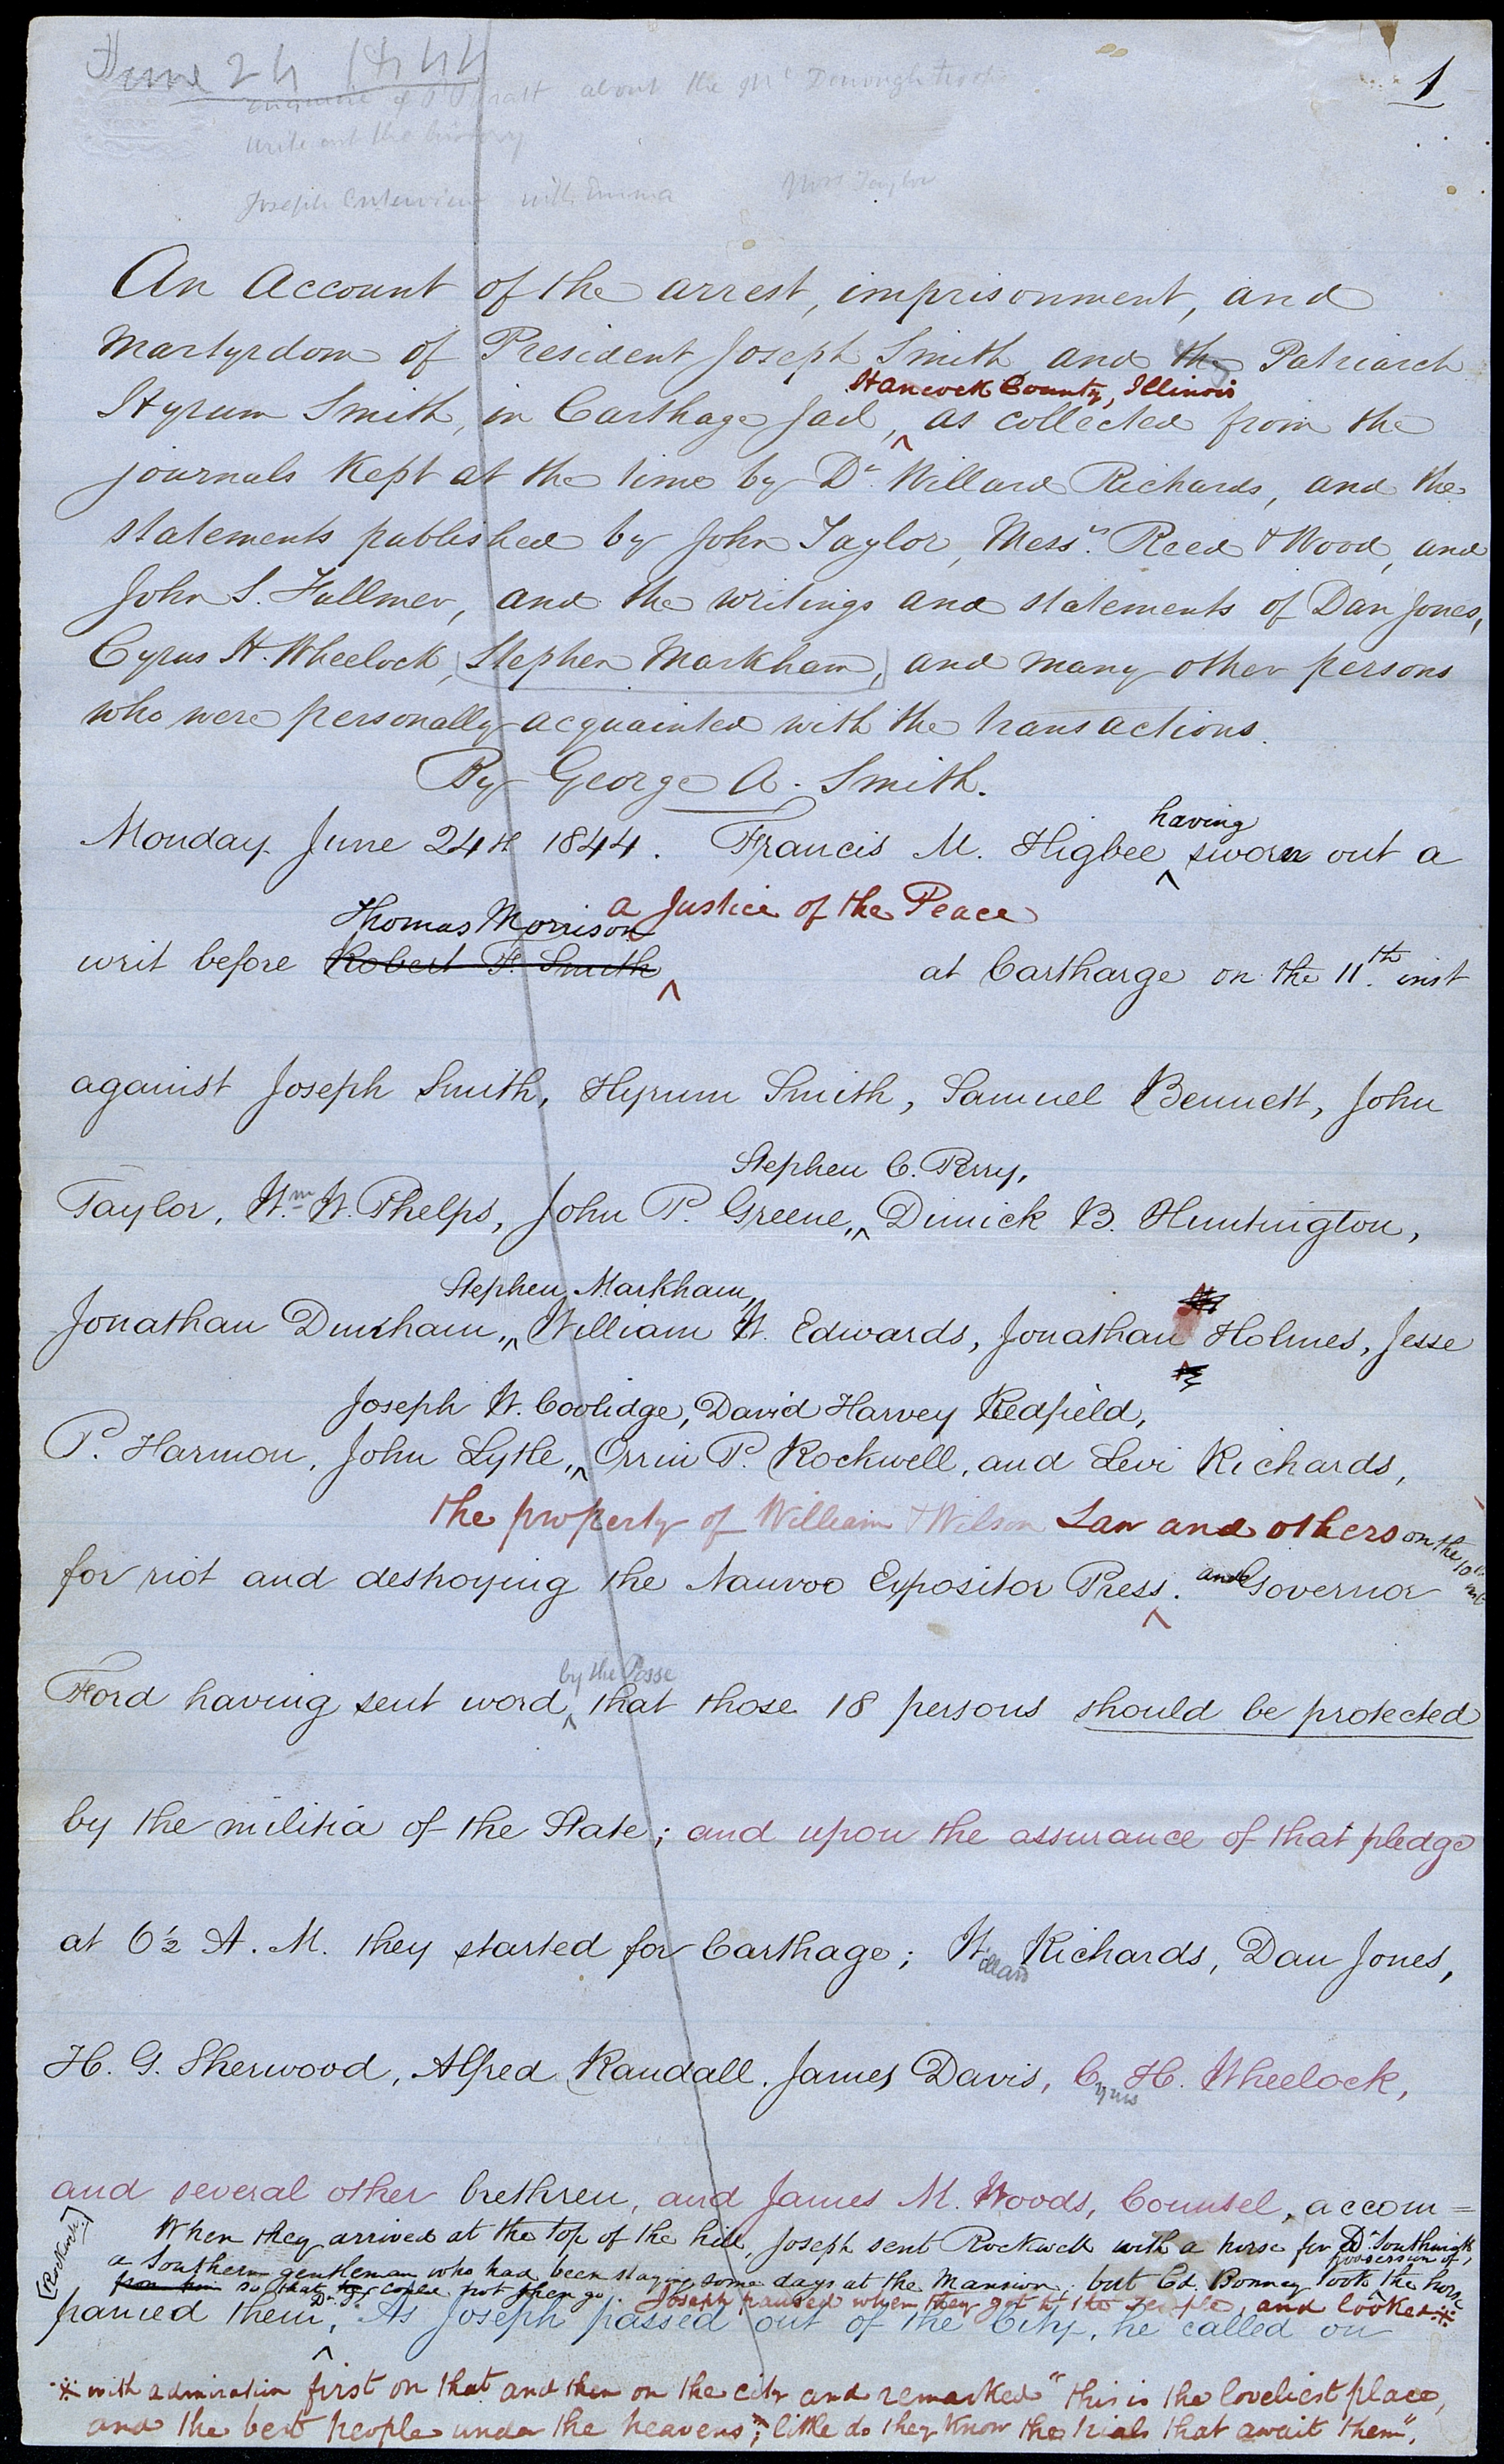 June 24 1844
1
about the Mc Donough troops
write out the history
Joseph interview with Emma Mrs Taylor
An Account of the arrest, imprisonment, and
Martyrdom of President Joseph Smith and the Patriarch
Hancock County, Illinois
Hyrum Smith, in Carthage Jail, ^ as collected from the
journals kept at the time by Dr. Willard Richards, and the
statements published by John Taylor, Messrs. Reed & Wood, and
John S. Fullmer, and the writings and statements of Dan Jones,
Cyrus H. Wheelock, Stephen Markham, and many other persons
who were personally acquainted with the transactions.
By George A. Smith.
having
Monday June 24th 1844. Francis M. Higbee ^ sworn out a
Thomas Morrison a Justice of the Peace
writ before Robert F. Smith ^ at Cartharge on the 11th. inst
against Joseph Smith, Hyrum Smith, Samuel Bennett, John
Stephen C. Perry,
Taylor, Wm. W. Phelps, John P. Greene, ^ Dimick B. Huntington,
Stephen Markham,
Jonathan Dunham, ^ William W. Edwards, Jonathan Holmes, Jesse
Joseph W. Coolidge, David Harvey Redfield,
P. Harmon, John Lytle, ^ Orrin P. Rockwell, and Levi Richards,
the property of William & Wilson Law and others on the 10th inst
for riot and destroying the Nauvoo Expositor Press. ^ and Governor
by the Posse
Ford having sent word ^ that those 18 persons should be protected
by the militia of the State; and upon the assurance of that pledge
at 6½ A. M. they started for Carthage; Willard Richards, Dan Jones,
H. G. Sherwood, Alfred Randall, James Davis, Cyrus H. Wheelock,
and several other brethren, and James M. Woods, Counsel, accom=
[Rockwell]
When they arrived at the top of the hill, Joseph sent Rockwell with a horse for Dr. Southwick
a Southern gentleman who had been staying some days at the Mansion; but Ed. Bonney took ^ possession of, the horse
from him so that Dr. S. could not then go. Joseph paused when they got to the Temple, and looked ※
panied them, ^ As Joseph passed out of the City, he called on
※ with admiration first on that and then on the city and remarked "this is the loveliest place,
and the best people under the heavens; little do they know the trials that await them",